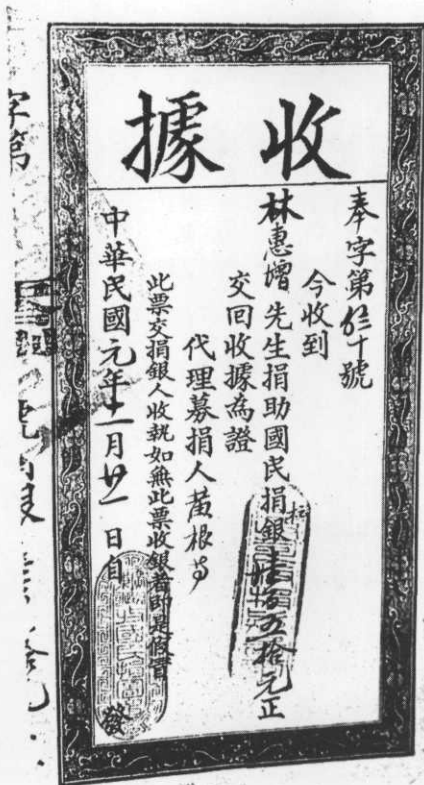 收據
奉字第 十號
今收到
林惠增 先生捐助國民捐銀 佰五拾元正
交回收據為證
代理募捐人黃根
此票交捐銀人收執如無此票收銀者即是假冒
中華民國元年十一月廿一日自 發
字第